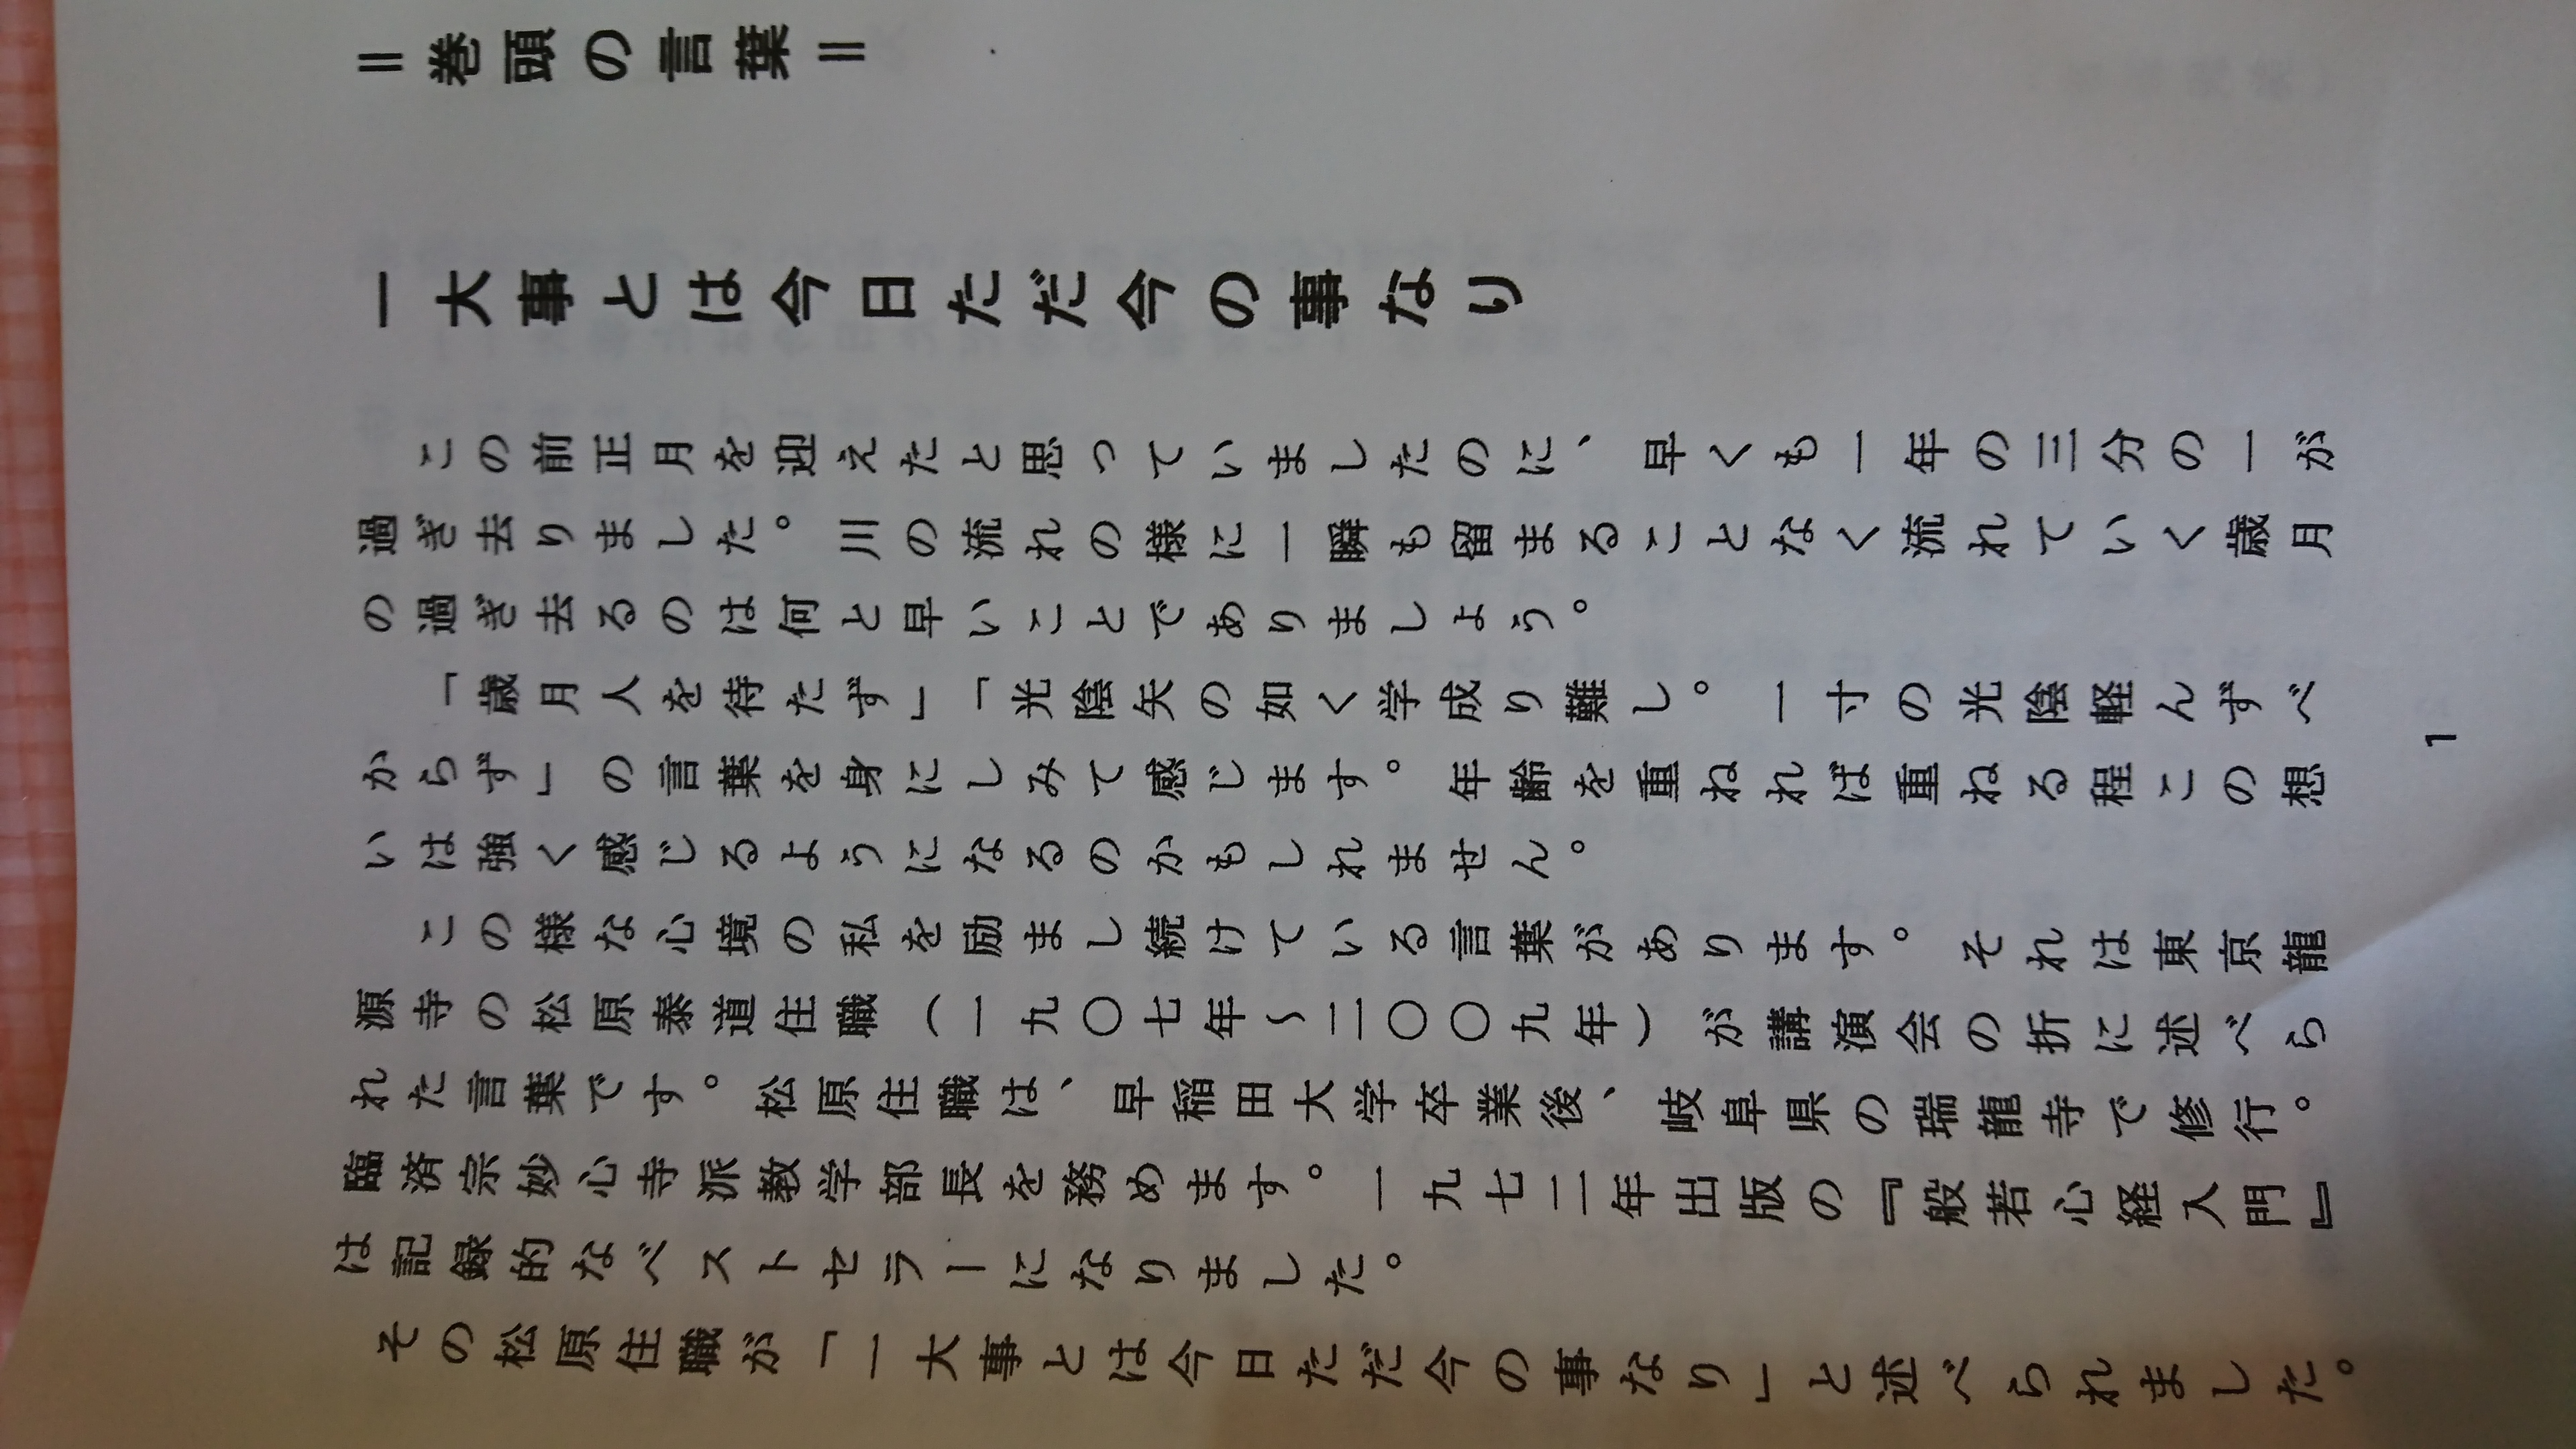 ＝巻頭の言葉＝
一大事とは今日ただ今の事なり
この前正月を迎えたと思っていましたのに、早くも一年の三分の一が
過ぎ去りました。川の流れの様に一瞬も留まることなく流れていく歳月
の過ぎ去るのは何と早いことでありましょう。
「歳月人を待たず」「光陰矢の如く学成り難し。一寸の光陰軽んずべ
からず」の言葉を身にしみて感じます。年齢を重ねれば重ねる程この想
いは強く感じるようになるのかもしれません。
この様な心境の私を励まし続けている言葉があります。それは東京龍
源寺の松原泰道住職（一九〇七年～二〇〇九年）が講演会の折に述べら
れた言葉です。松原住職は、早稲田大学卒業後、岐阜県の瑞龍寺で修行。
臨済宗妙心寺派教学部長を務めます。一九七二年出版の『般若心経入門』
は記録的なベストセラーになりました。
その松原住職が「一大事とは今日ただ今の事なり」と述べられました。
1